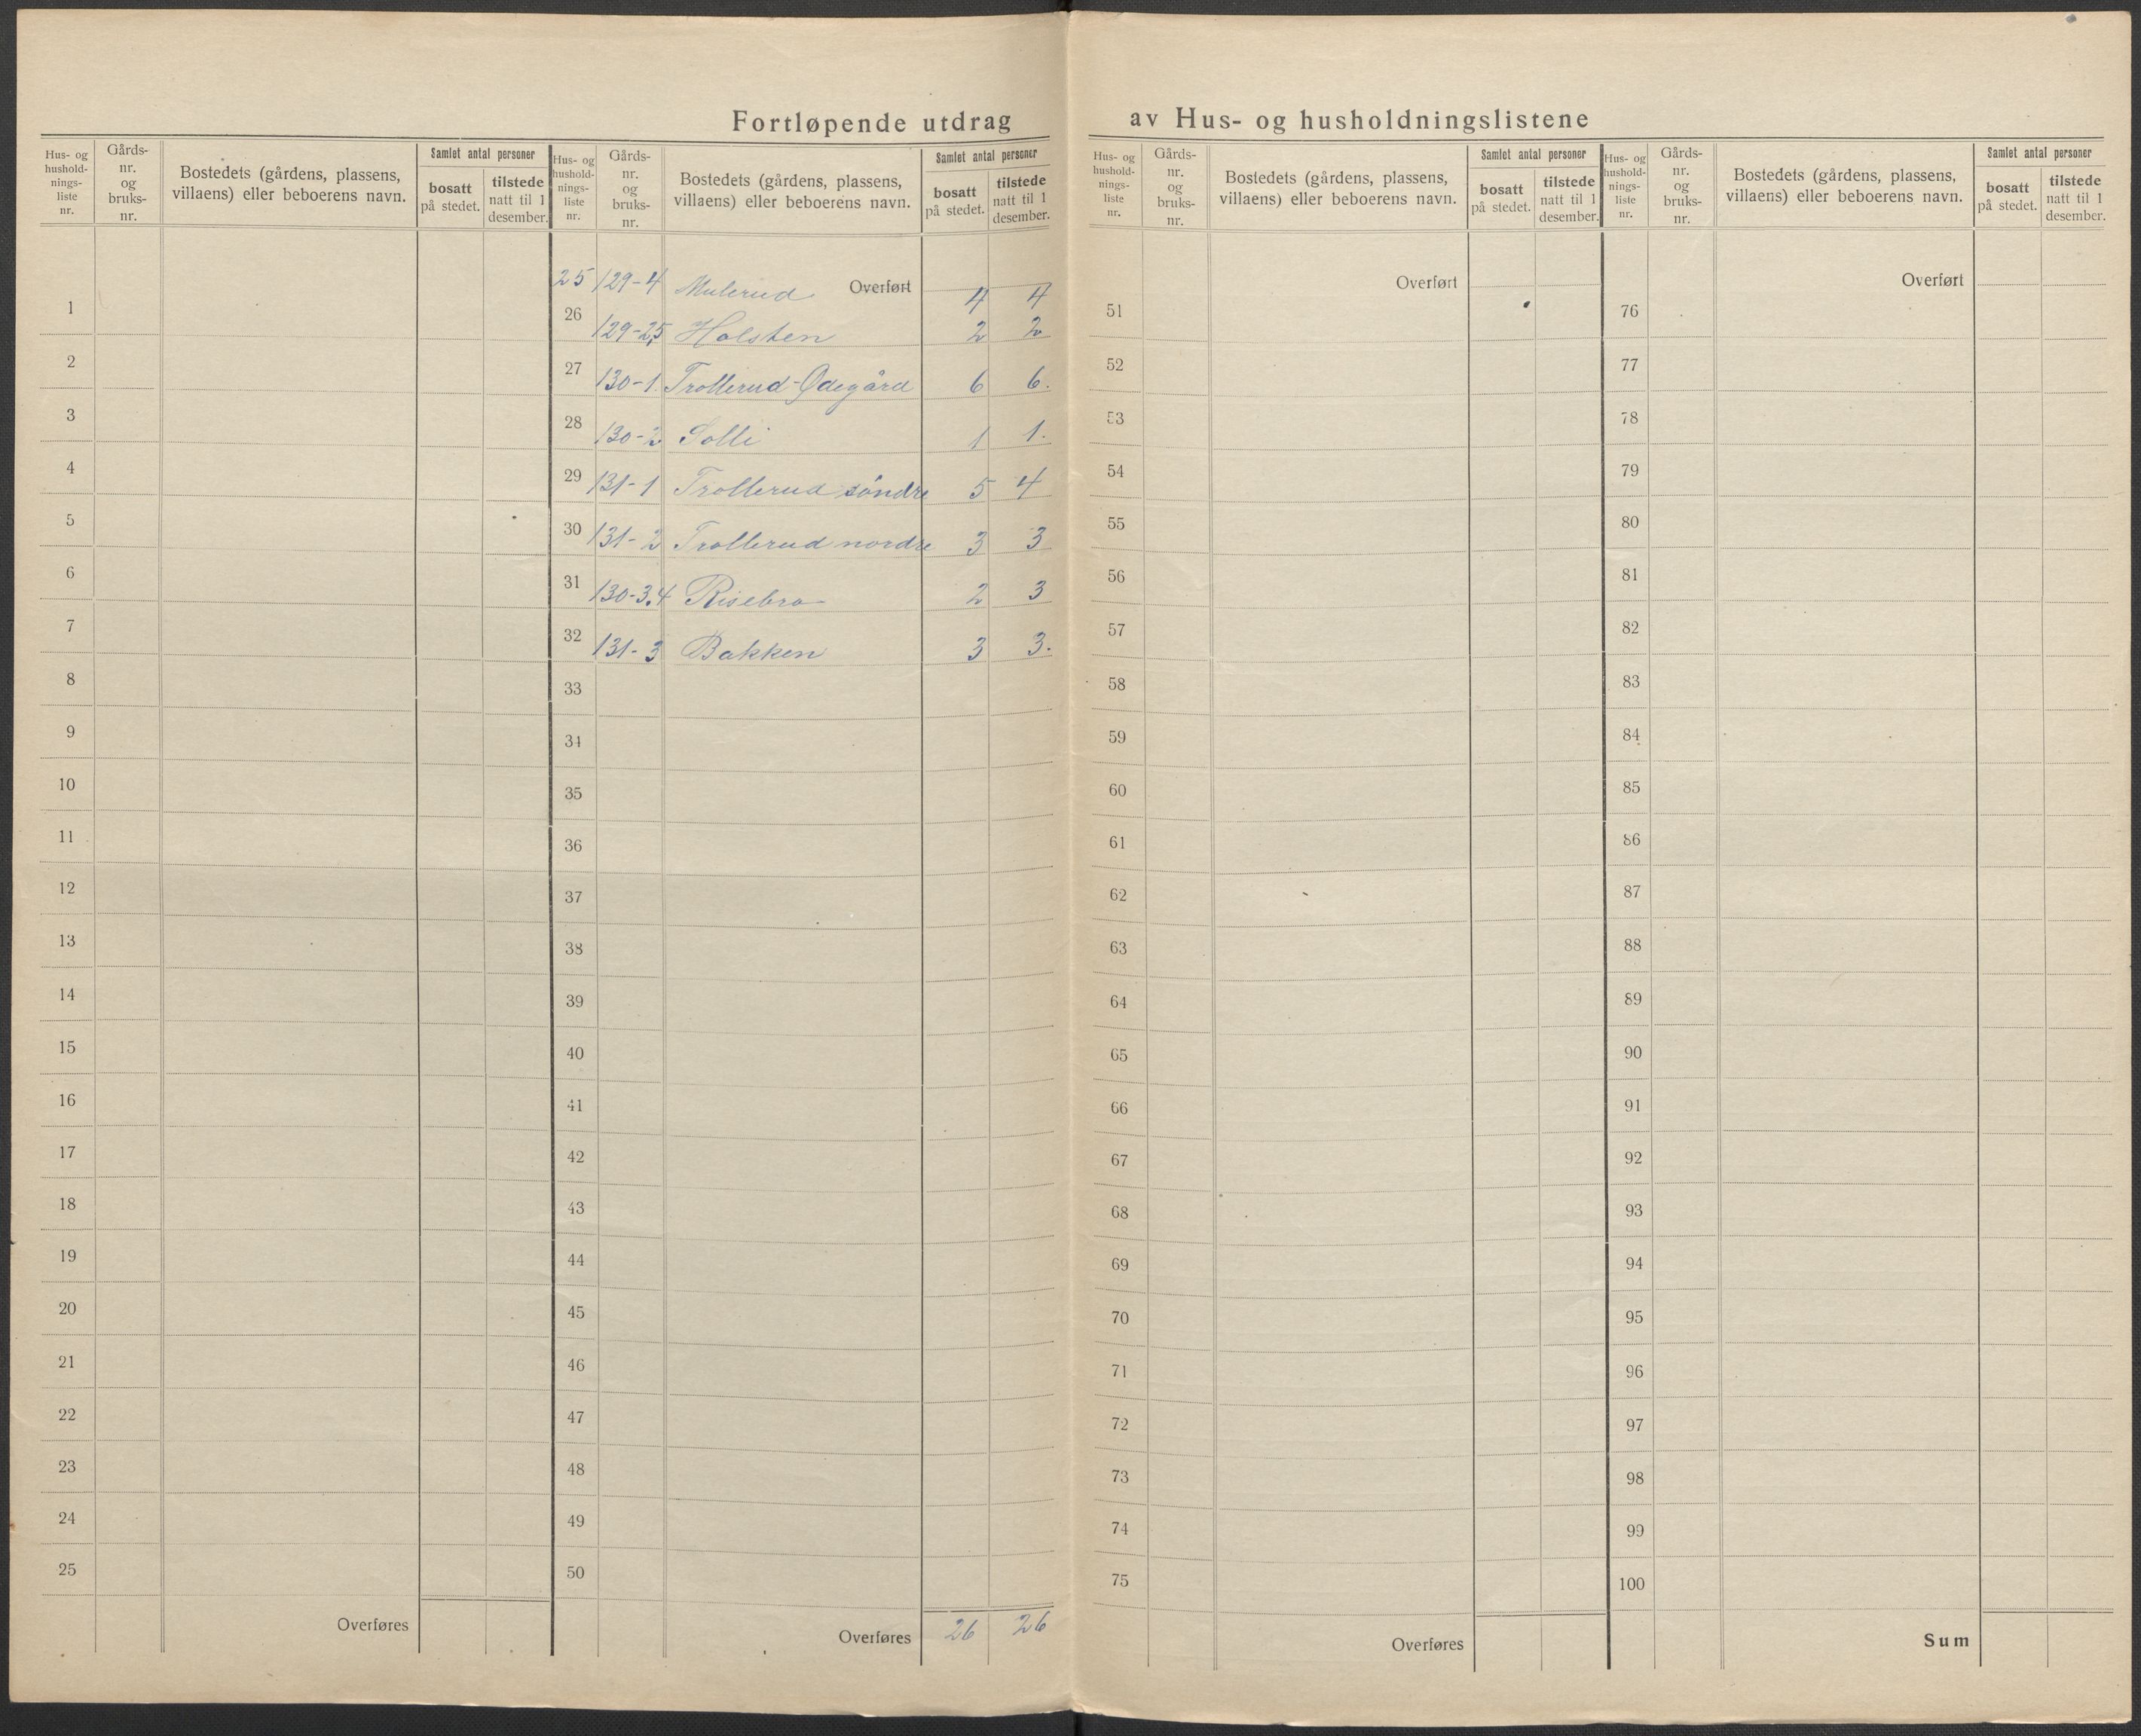 Fortløpende utdrag av Hus- og husholdningslistene
Hus- og hushold-nings-liste nr. Gårds-nr. og bruks-nr. Bostedets (gårdens, plassens, villaens) eller beboerens navn. Samlet antal personer bosatt på stedet. tilstede natt til 1 desember.
1
2
3
4
5
6
7
8
9
10
11
12
13
14
15
16
17
18
19
20
21
22
23
24
25
Overføres
Hus- og hushold-nings-liste nr. Gårds-nr. og bruks-nr. Bostedets (gårdens, plassens, villaens) eller beboerens navn. Samlet antal personer bosatt på stedet. tilstede natt til 1 desember.
25 129-4 Mulerud Overført 4 4
26 129-25 Holsten 2 2
27 130-1. Trollerud-Ødegård 6 6.
28 130-2 Solli 1 1.
29 131-1 Trollerud søndre 5 4
30 131-2 Trollerud nordre 3 3
31 130-3.4 Risebro 2 3
32 131-3 Bakken 3 3.
33
34
35
36
37
38
39
40
41
42
43
44
45
46
47
48
49
50
Overføres 26 26
Hus- og hushold-nings-liste nr. Gårds-nr. og bruks-nr. Bostedets (gårdens, plassens, villaens) eller beboerens navn. Samlet antal personer bosatt på stedet. tilstede natt til 1 desember.
Overført
51
52
53
54
55
56
57
58
59
60
61
62
63
64
65
66
67
68
69
70
71
72
73
74
75
Overføres
Hus- og hushold-nings-liste nr. Gårds-nr. og bruks-nr. Bostedets (gårdens, plassens, villaens) eller beboerens navn. Samlet antal personer bosatt på stedet. tilstede natt til 1 desember.
Overført
76
77
78
79
80
81
82
83
84
85
86
87
88
89
90
91
92
93
94
95
96
97
98
99
100
Sum